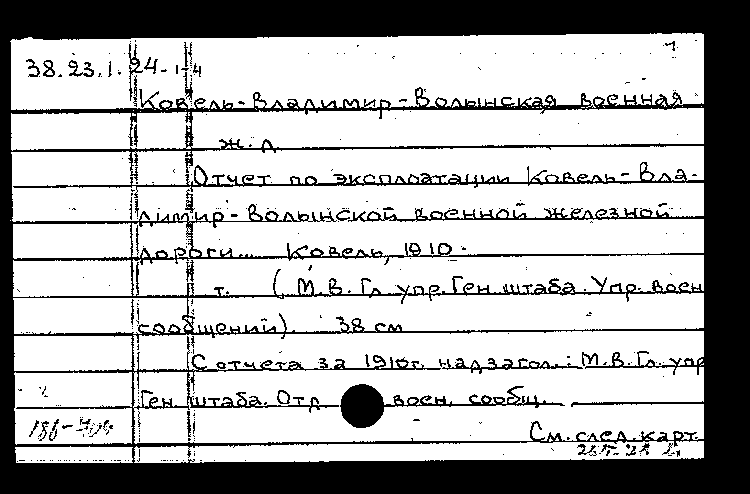 38.23.1.24-1-4
Ковель-Владимир-Волынская военная
ж. д.
Отчет по эксплоатации Ковель-Вла-
димир-Волынской военной железной
дороги... Ковель, 1910.
т. (М.В. Гл. упр. Ген. штаба. Упр. воен
сообщений). 38 см
С отчета за 1910г. надзагол.: М.В. Гл. упр
Ген. штаба. Отд воен. сообщ.
См. след. карт.